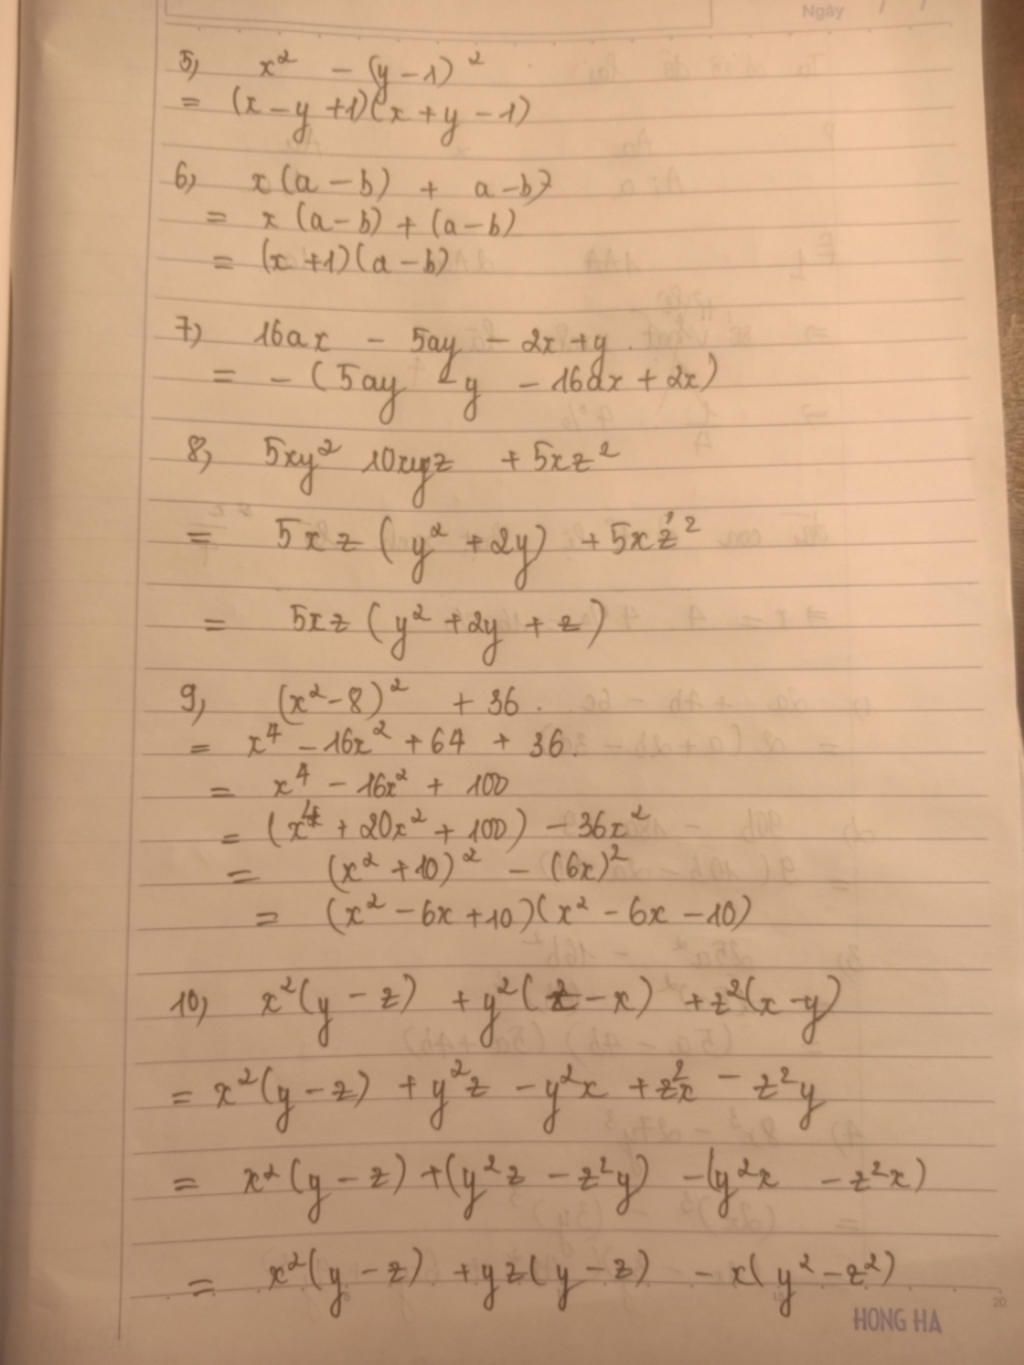 Ngày / /
5) x² - (y - 1)²
= (x - y + 1)(x + y - 1)
6) x(a - b) + a - b
= x(a - b) + (a - b)
= (x + 1)(a - b)
7) 16ax - 5ay - 2x + y.
= - (5ay - y - 16ax + 2x)
8) 5xy² 10xyz + 5xz²
= 5xz (y² + 2y) + 5xz²
= 5xz (y² + 2y + z)
9) (x² - 8)² + 36.
= x⁴ - 16x² + 64 + 36.
= x⁴ - 16x² + 100
= (x⁴ + 20x² + 100) - 36x²
= (x² + 10)² - (6x)²
= (x² - 6x + 10)(x² - 6x - 10)
10) x²(y - z) + y²(z - x) + z²(x - y)
= x²(y - z) + y²z - y²x + z²x - z²y
= x²(y - z) + (y²z - z²y) - (y²x - z²x)
= x²(y - z) + yz(y - z) - x(y² - z²)
20
HONG HA